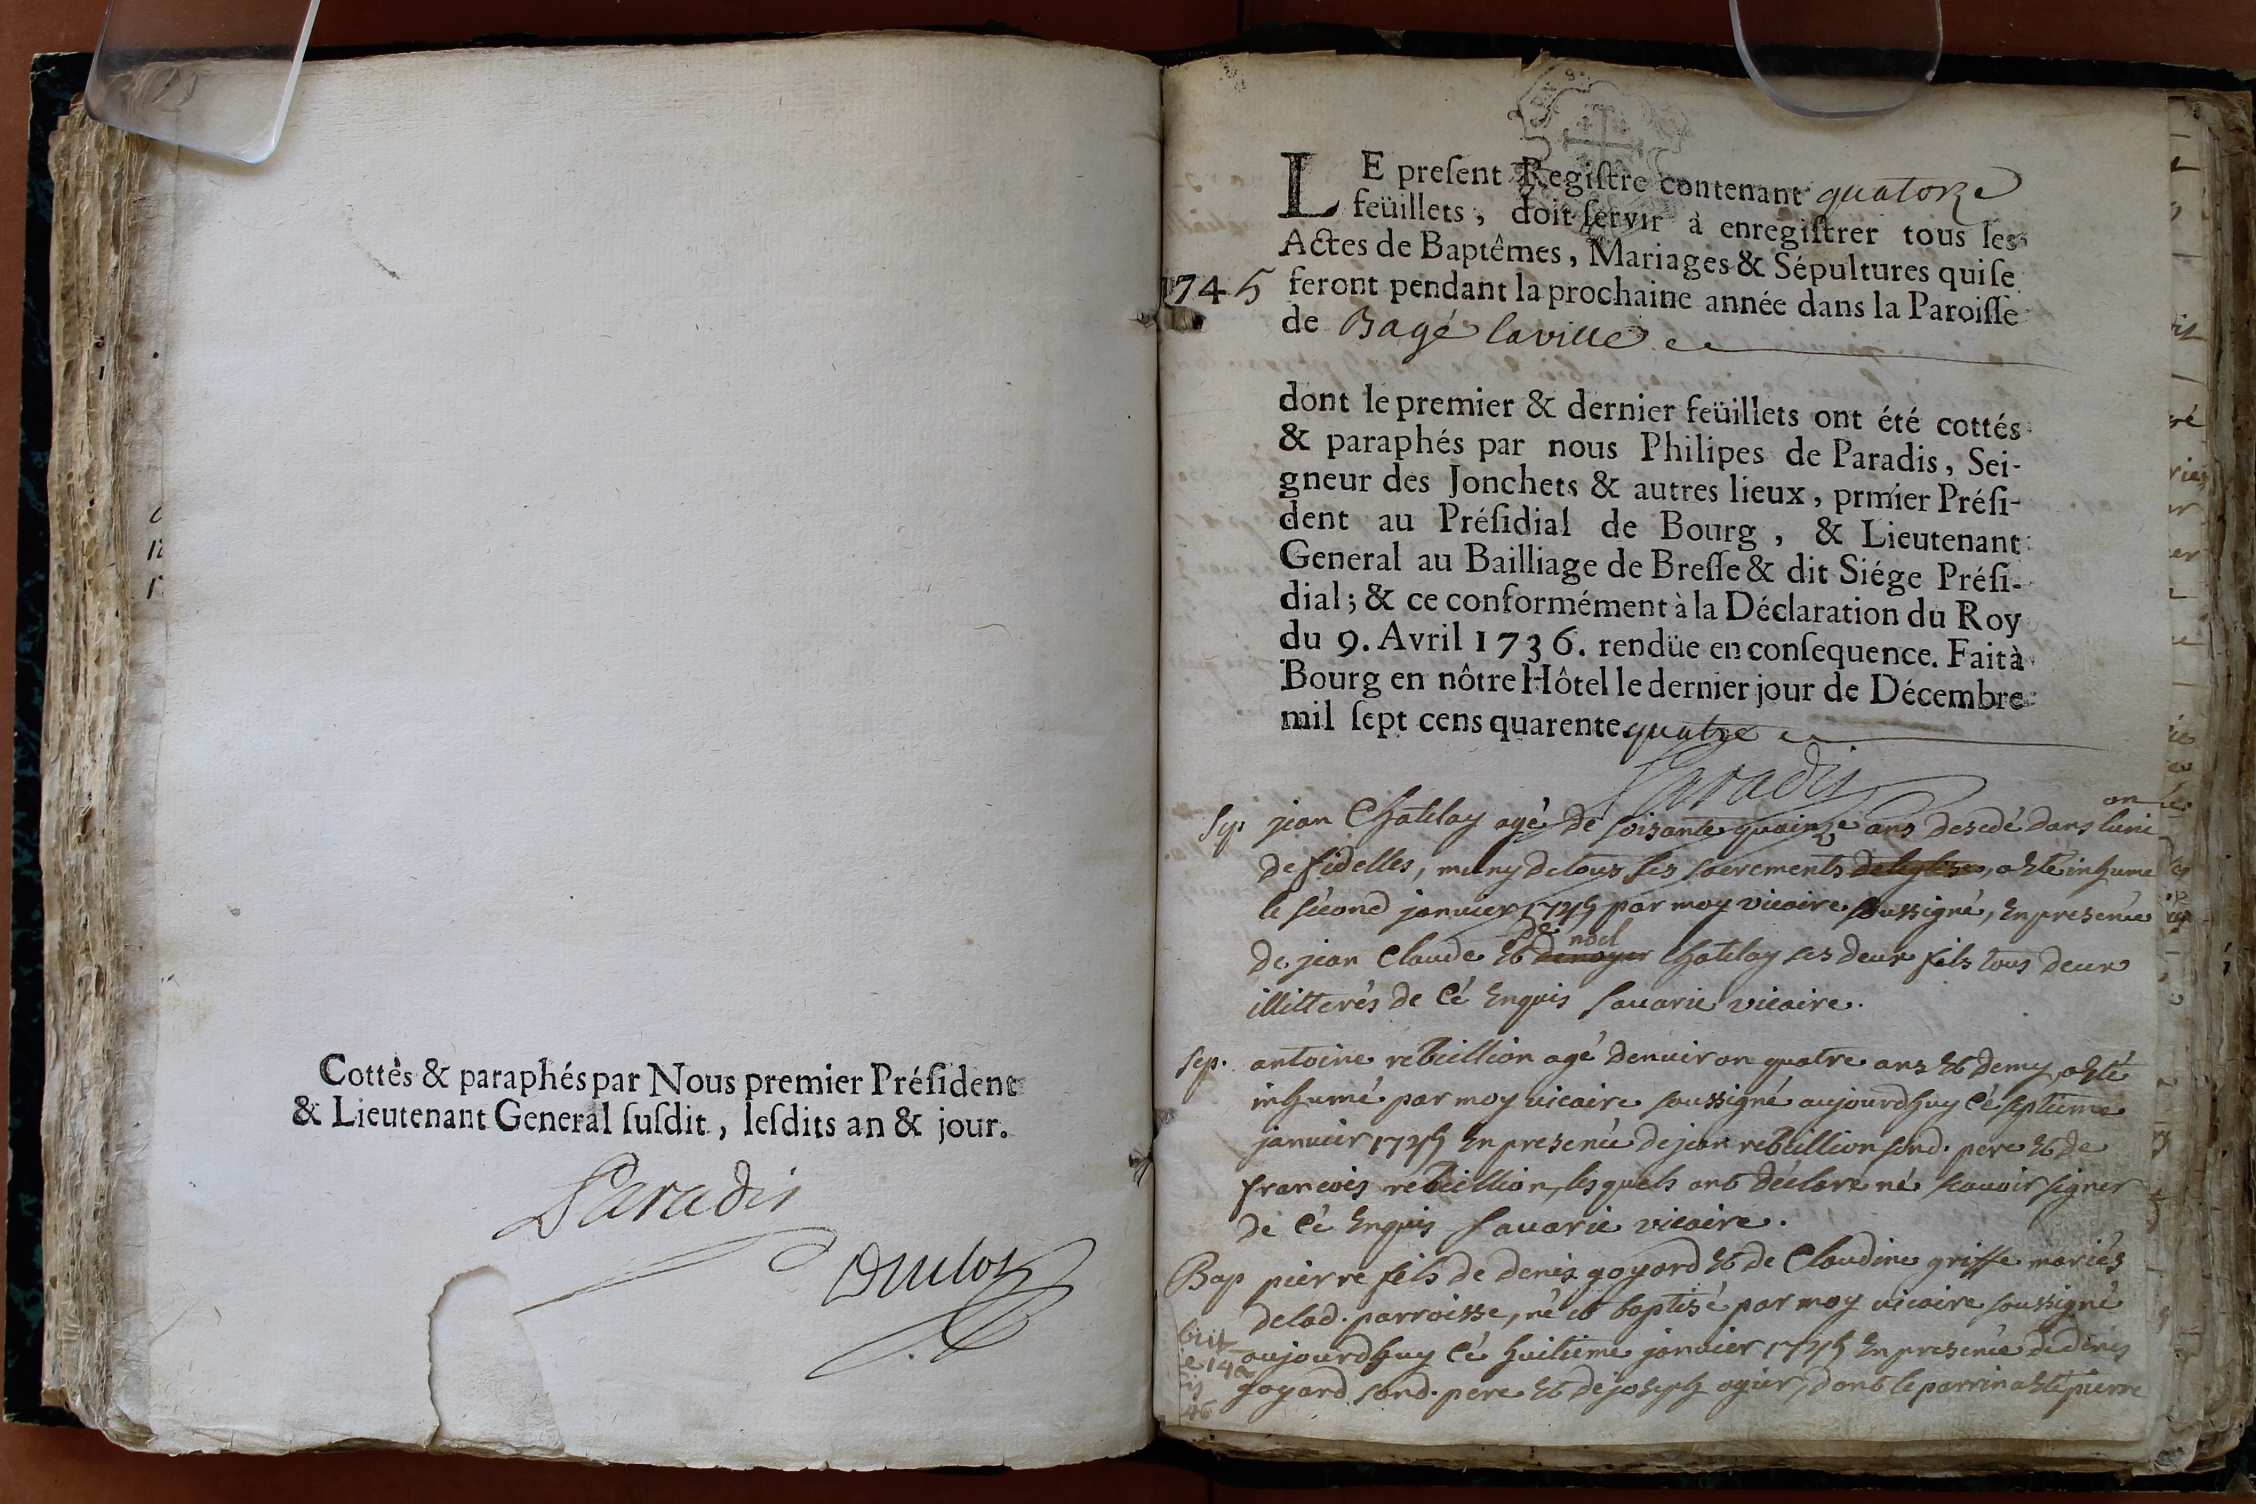 Cottés & paraphés par Nous premier Préſident
& Lieutenant General ſuſdit, leſdits an & jour.
Paradis
LE preſent Regiſtre contenant quatorze
feüillets, doit ſervir à enregiſtrer tous les
Actes de Baptêmes, Mariages & Sépultures qui ſe
1745 feront pendant la prochaine année dans la Paroiſſe
de Bagé la ville
dont le premier & dernier feüillets ont été cottés
& paraphés par nous Philipes de Paradis, Sei-
gneur des Jonchets & autres lieux, prmier Préſi-
dent au Préſidial de Bourg, & Lieutenant
General au Bailliage de Breſſe & dit Siége Préſi-
dial; & ce conformément à la Déclaration du Roy
du 9. Avril 1736. rendüe en conſequence. Fait à
Bourg en nôtre Hôtel le dernier jour de Décembre
mil ſept cens quarente quatre
Paradis
Sep. jean Chatelay agé de soisante quainze ans desedé dans l'uni on
de fidelles, muny de tous ses sacrements de leglise, a éte inhumé
le sécond janvier 1745 par moy vicaire soussigné, en presence
de jean Claude et de noel chatelay ses deux fils tous deux
illitterés de cé enquis Savarie vicaire.
Sep. antoine rebeillion agé denviron quatre ans et demy, a eté
inhumé par moy vicaire soussigné aujourdhuy cé septieme
janvier 1745 en presence de jean rebeillion sond. pere et de
francois rebeillion, lesquels ont déclaré né scavoir signer
de cé enquis Savarie vicaire.
Bap pierre fils de denis goyard et de Claudine griffe mariés
de lad. parroisse, né et baptisé par moy vicaire soussigné
aujourdhuy cé huitieme janvier 1745 en presence de denis
goyard sond. pere et de joseph ogier, dont le parrin a eté pierre